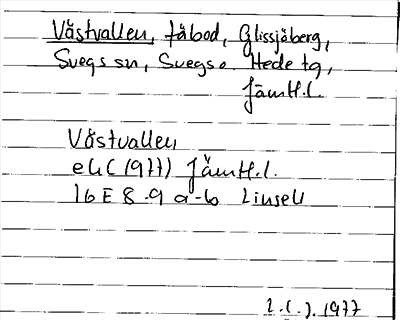 Västvallen, fäbod, Glissjöberg,
Svegs sn, Svegs o Hede tg,
Jämtl.l.
Västvallen
ek (1977) Jämtl.l.
16E 8-9 a-b Linsell
1977